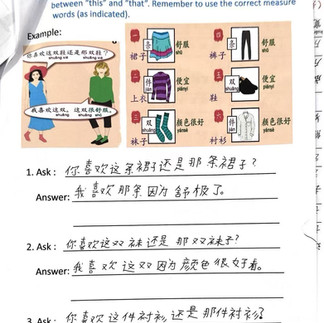 between "this" and "that". Remember to use the correct measure
words (as indicated).
Example:
你喜欢这双鞋还是那双鞋?
shuāng shuāng
我喜欢这双,这双很舒服。
shuāng shuāng
条 舒服
裙子
条 舒服
裤子
件 便宜
上衣
双 便宜
鞋
双 颜色很好
袜子
件 颜色很好
衬衫
1. Ask : 你喜欢这条裙子还是那条裙子?
Answer: 我喜欢那条因为舒服极了。
2. Ask : 你喜欢这双袜还是那双袜子?
Answer: 我喜欢这双因为颜色很好看。
3. Ask : 你喜欢这件衬衫还是那件衬衫?